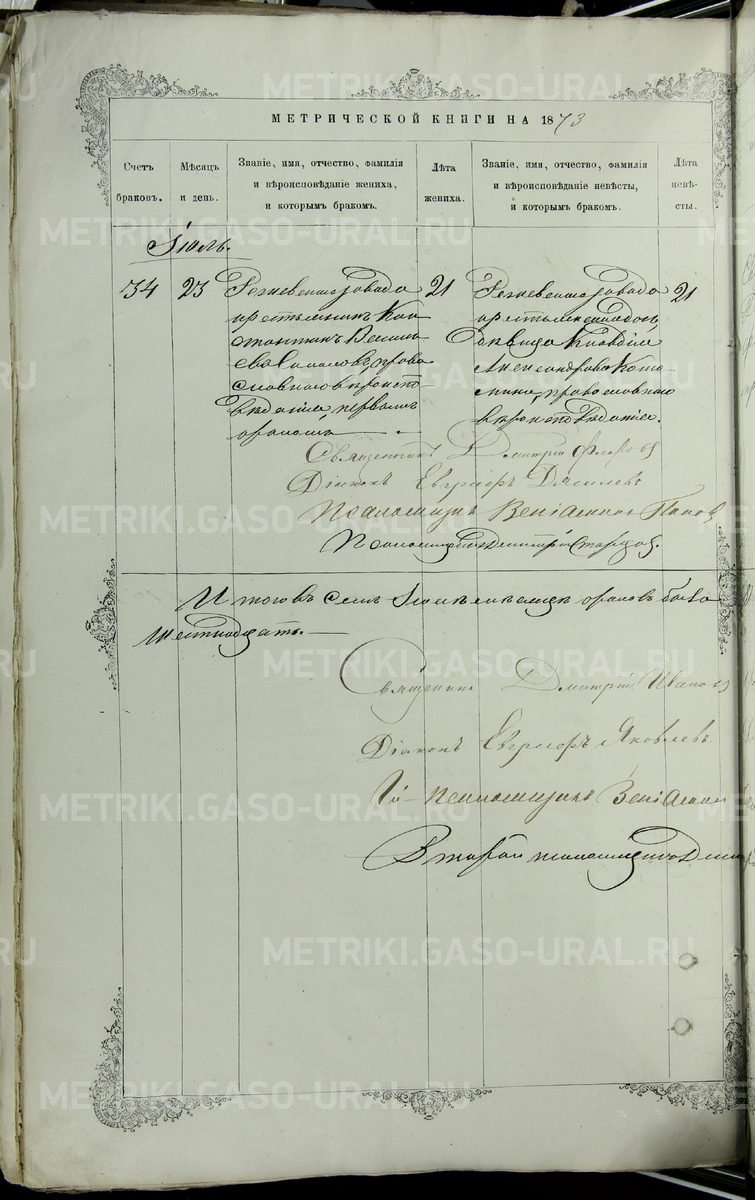 МЕТРИЧЕСКОЙ КНИГИ НА 1873
Счетъ браковъ.
Мѣсяцъ и день.
Званіе, имя, отчество, фамилія и вѣроисповѣданіе жениха, и которымъ бракомъ.
Лѣта жениха.
Званіе, имя, отчество, фамилія и вѣроисповѣданіе невѣсты, и которымъ бракомъ.
Лѣта невѣсты.
Іюль.
34
23
Режевскаго завода
крестьянинъ Кон-
стантинъ Василь-
евъ православ
славнаго вѣроиспо-
вѣданія, первымъ
бракомъ
21
Режевскаго завода
крестьянская дочь
дѣвица Клавдія
Александрова
православнаго
вѣроисповѣданія.
21
Священникъ Дмитрій
Діаконъ Евграфъ
Псаломщикъ Веніаминъ Поповъ
Псаломщикъ Дмитрій
Итого въ семъ Іюлѣ мѣсяцѣ браковъ было
шестнадцать.
Священникъ Дмитрій Ивановъ
Діаконъ Евграфъ Яковлевъ
Й - Псаломщикъ Веніамин
Второй псаломщикъ Дми
METRIKI.GASO-URAL.RU